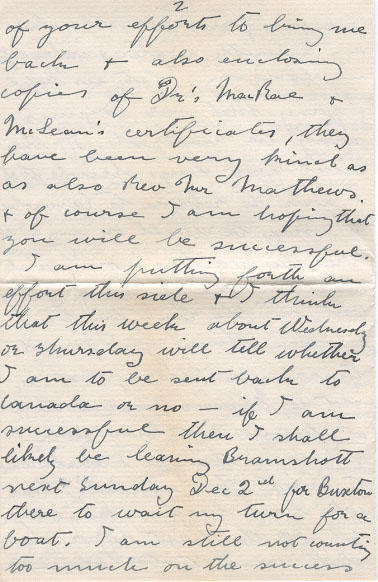 2
of your efforts to bring me
back & also enclosing
copies of Dr's MacRae &
McLean's certificates, they
have been very kind as
as also Rev Mr Mathews.
& of course I am hoping that
you will be successful.
I am putting forth an
effort this side & I think
that this week about Wednesday
or Thursday will tell whether
I am to be sent back to
Canada or no - if I am
successful then I shall
likely be leaving Bramshott
next Sunday Dec 2nd for Buxton
there to wait my turn for a
boat. I am still not counting
too much on the success